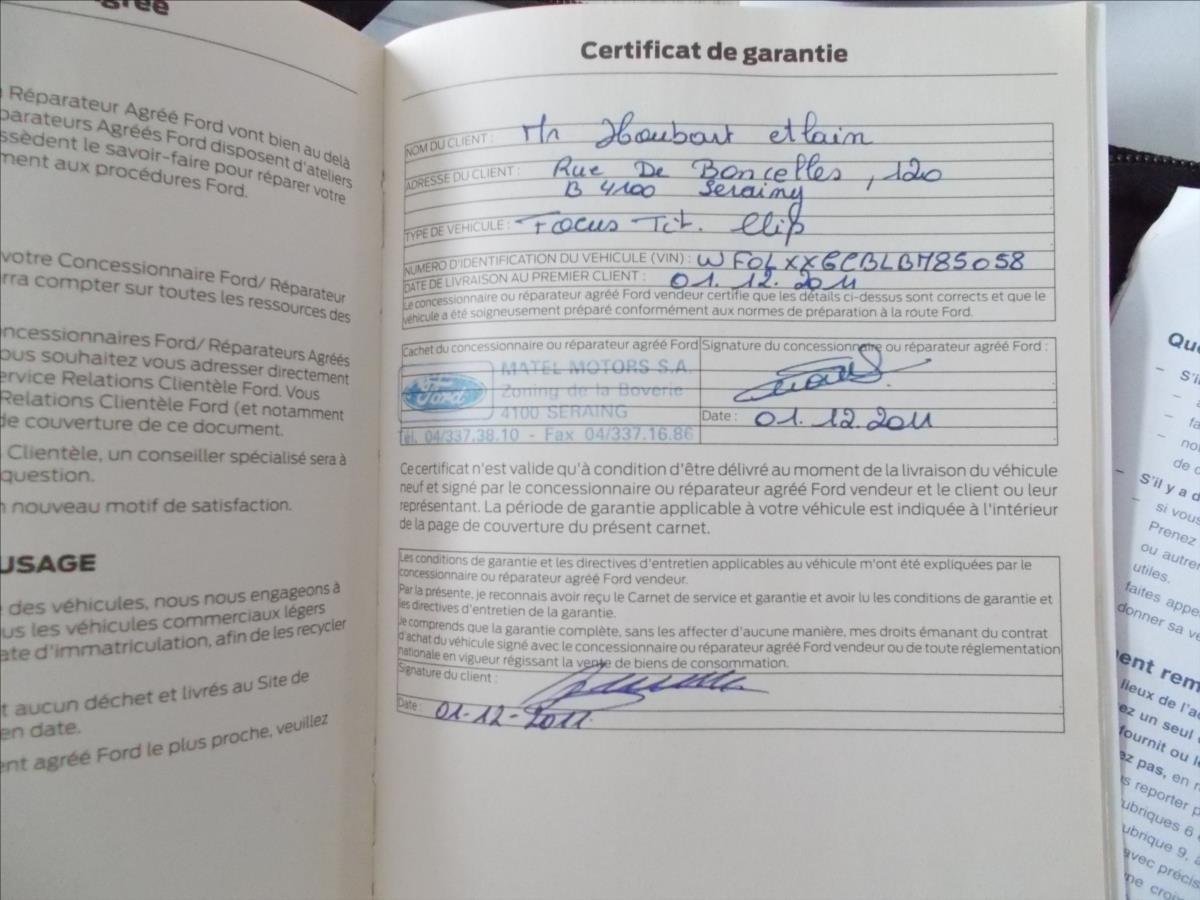 Agréé
Réparateur Agréé Ford vont bien au delà
parateurs Agréés Ford disposent d'ateliers
ssèdent le savoir-faire pour réparer votre
ment aux procédures Ford.
votre Concessionnaire Ford/ Réparateur
rra compter sur toutes les ressources des
oncessionnaires Ford/ Réparateurs Agréés
ous souhaitez vous adresser directement
ervice Relations Clientèle Ford. Vous
Relations Clientèle Ford (et notamment
de couverture de ce document.
Clientèle, un conseiller spécialisé sera à
question.
nouveau motif de satisfaction.
USAGE
des véhicules, nous nous engageons à
us les véhicules commerciaux légers
ate d'immatriculation, afin de les recycler
t aucun déchet et livrés au Site de
en date.
ent agréé Ford le plus proche, veuillez
Certificat de garantie
NOM DU CLIENT : Mr Houbart Alain
ADRESSE DU CLIENT : Rue De Boncelles, 120
B 4100 Seraing
TYPE DE VEHICULE : Focus Tit. Clip
NUMERO D'IDENTIFICATION DU VEHICULE (VIN) : WF0LXXGCBLB785058
DATE DE LIVRAISON AU PREMIER CLIENT : 01.12.2011
Le concessionnaire ou réparateur agréé Ford vendeur certifie que les détails ci-dessus sont corrects et que le
véhicule a été soigneusement préparé conformément aux normes de préparation à la route Ford.
Cachet du concessionnaire ou réparateur agréé Ford
Ford
MATEL MOTORS S.A.
Zoning de la Boverie
4100 SERAING
Tél. 04/337.38.10 - Fax 04/337.16.86
Signature du concessionnaire ou réparateur agréé Ford :
Date : 01.12.2011
Ce certificat n'est valide qu'à condition d'être délivré au moment de la livraison du véhicule
neuf et signé par le concessionnaire ou réparateur agréé Ford vendeur et le client ou leur
représentant. La période de garantie applicable à votre véhicule est indiquée à l'intérieur
de la page de couverture du présent carnet.
Les conditions de garantie et les directives d'entretien applicables au véhicule m'ont été expliquées par le
concessionnaire ou réparateur agréé Ford vendeur.
Par la présente, je reconnais avoir reçu le Carnet de service et garantie et avoir lu les conditions de garantie et
les directives d'entretien de la garantie.
Je comprends que la garantie complète, sans les affecter d'aucune manière, mes droits émanant du contrat
d'achat du véhicule signé avec le concessionnaire ou réparateur agréé Ford vendeur ou de toute réglementation
nationale en vigueur régissant la vente de biens de consommation.
Signature du client :
Date : 01-12-2011
Que
– S'il
– S'il y a d
– si vous
Prenez
ou autre
utiles.
faites appe
donner sa ve
ent rem
lieux de l'ac
ez un seul
fournit ou le
ez pas, en r
s reporter p
ubriques 6
ubrique 9, a
avec précis
ne croi